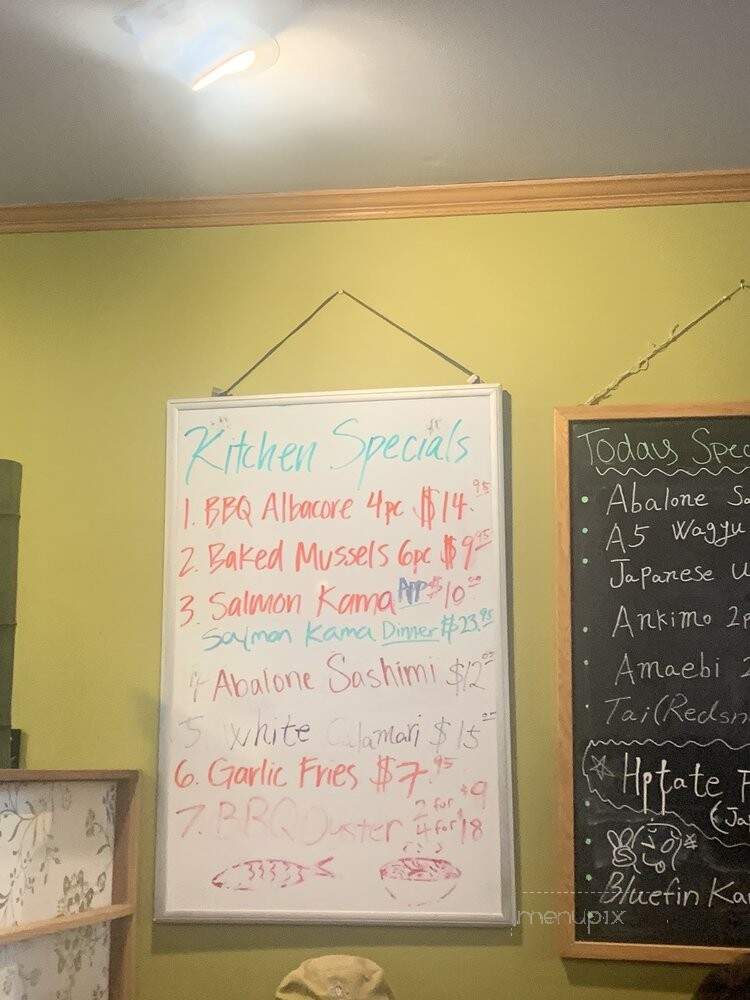 Kitchen Specials
1. BBQ Albacore 4pc $14.95
2. Baked Mussels 6pc $9.95
3. Salmon Kama App $10.00
Salmon Kama Dinner $23.95
4 Abalone Sashimi $12
5. White Calamari $15
6. Garlic Fries $7.95
7. BBQ Oyster 2 for $9
4 for $18
Todays Spec
Abalone Sa
A5 Wagyu
Japanese U
Ankimo 2p
Amaebi 2
Tai (Redsn
Hotate
(Ja
Bluefin Ka
menupix